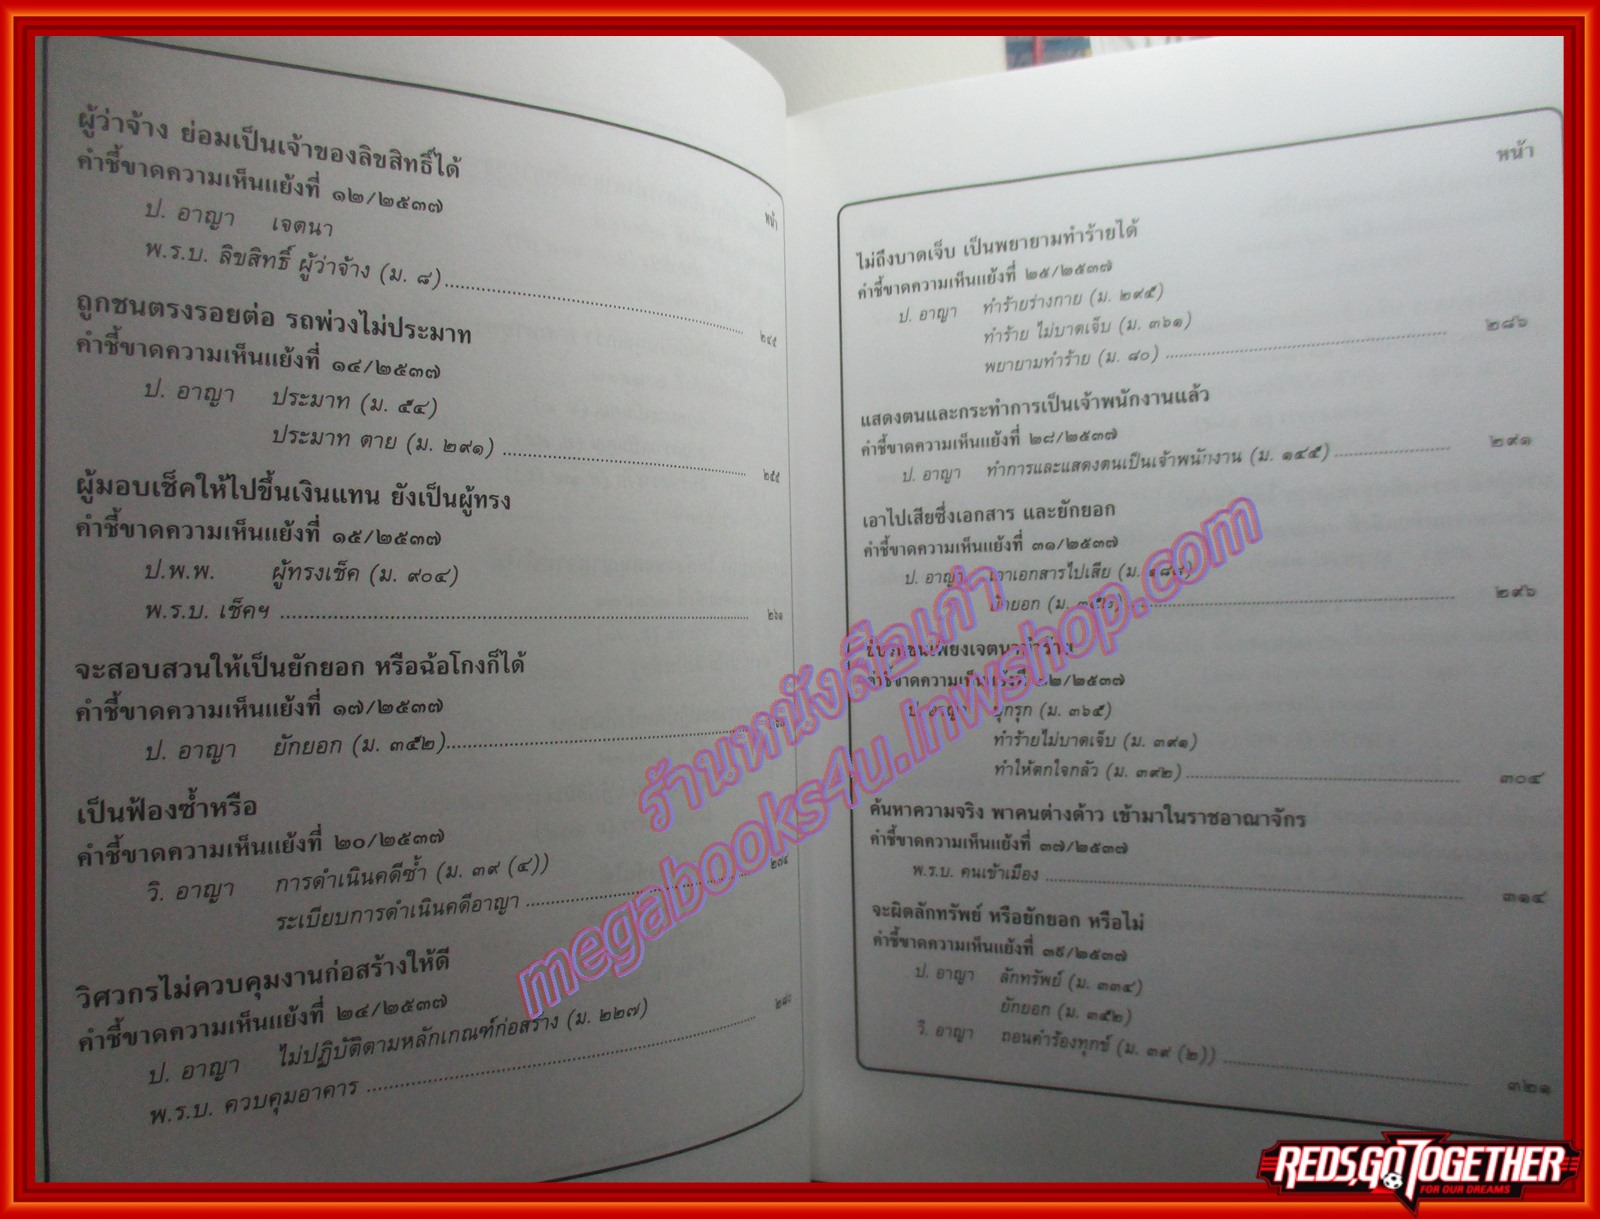 หน้า
ผู้ว่าจ้าง ย่อมเป็นเจ้าของลิขสิทธิ์ได้
คำชี้ขาดความเห็นแย้งที่ ๑๒/๒๕๓๗
ป. อาญา เจตนา
พ.ร.บ. ลิขสิทธิ์ ผู้ว่าจ้าง (ม. ๘) ๒๔๕
ถูกชนตรงรอยต่อ รถพ่วงไม่ประมาท
คำชี้ขาดความเห็นแย้งที่ ๑๔/๒๕๓๗
ป. อาญา ประมาท (ม. ๕๔)
ประมาท ตาย (ม. ๒๙๑) ๒๕๕
ผู้มอบเช็คให้ไปขึ้นเงินแทน ยังเป็นผู้ทรง
คำชี้ขาดความเห็นแย้งที่ ๑๕/๒๕๓๗
ป.พ.พ. ผู้ทรงเช็ค (ม. ๙๐๔)
พ.ร.บ. เช็คฯ ๒๖๑
จะสอบสวนให้เป็นยักยอก หรือฉ้อโกงก็ได้
คำชี้ขาดความเห็นแย้งที่ ๑๗/๒๕๓๗
ป. อาญา ยักยอก (ม. ๓๕๒)
เป็นฟ้องซ้ำหรือ
คำชี้ขาดความเห็นแย้งที่ ๒๐/๒๕๓๗
วิ. อาญา การดำเนินคดีซ้ำ (ม. ๓๙ (๔))
ระเบียบการดำเนินคดีอาญา ๒๗๔
วิศวกรไม่ควบคุมงานก่อสร้างให้ดี
คำชี้ขาดความเห็นแย้งที่ ๒๔/๒๕๓๗
ป. อาญา ไม่ปฏิบัติตามหลักเกณฑ์ก่อสร้าง (ม. ๒๒๗)
พ.ร.บ. ควบคุมอาคาร
หน้า
ไม่ถึงบาดเจ็บ เป็นพยายามทำร้ายได้
คำชี้ขาดความเห็นแย้งที่ ๒๕/๒๕๓๗
ป. อาญา ทำร้ายร่างกาย (ม. ๒๙๕)
ทำร้าย ไม่บาดเจ็บ (ม. ๓๖๑)
พยายามทำร้าย (ม. ๘๐) ๒๘๖
แสดงตนและกระทำการเป็นเจ้าพนักงานแล้ว
คำชี้ขาดความเห็นแย้งที่ ๒๘/๒๕๓๗
ป. อาญา ทำการและแสดงตนเป็นเจ้าพนักงาน (ม. ๑๔๕) ๒๙๑
เอาไปเสียซึ่งเอกสาร และยักยอก
คำชี้ขาดความเห็นแย้งที่ ๓๑/๒๕๓๗
ป. อาญา เอาเอกสารไปเสีย (ม. ๑๘๘)
ยักยอก (ม. ๓๕๒) ๒๙๖
คำชี้ขาดความเห็นแย้งที่ ๓๒/๒๕๓๗
ป. อาญา บุกรุก (ม. ๓๖๕)
ทำร้ายไม่บาดเจ็บ (ม. ๓๙๑)
ทำให้ตกใจกลัว (ม. ๓๙๒) ๓๐๔
ค้นหาความจริง พาคนต่างด้าว เข้ามาในราชอาณาจักร
คำชี้ขาดความเห็นแย้งที่ ๓๗/๒๕๓๗
พ.ร.บ. คนเข้าเมือง ๓๑๔
จะผิดลักทรัพย์ หรือยักยอก หรือไม่
คำชี้ขาดความเห็นแย้งที่ ๓๙/๒๕๓๗
ป. อาญา ลักทรัพย์ (ม. ๓๓๔)
ยักยอก (ม. ๓๕๒)
วิ. อาญา ถอนคำร้องทุกข์ (ม. ๓๙ (๒)) ๓๒๑
ร้านหนังสือเก่า
megabooks4u.lnwshop.com
REDS,GO TOGETHER
FOR OUR DREAMS